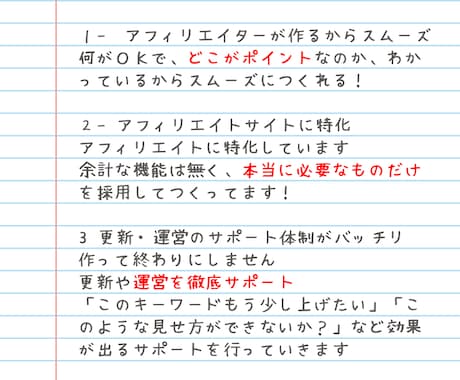 １－ アフィリエイターが作るからスムーズ
何がＯＫで、どこがポイントなのか、わか
っているからスムーズにつくれる！
２－ アフィリエイトサイトに特化
アフィリエイトに特化しています
余計な機能は無く、本当に必要なものだけ
を採用してつくってます！
３ 更新・運営のサポート体制がバッチリ
作って終わりにしません
更新や運営を徹底サポート
「このキーワードもう少し上げたい」「こ
のような見せ方ができないか？」など効果
が出るサポートを行っていきます